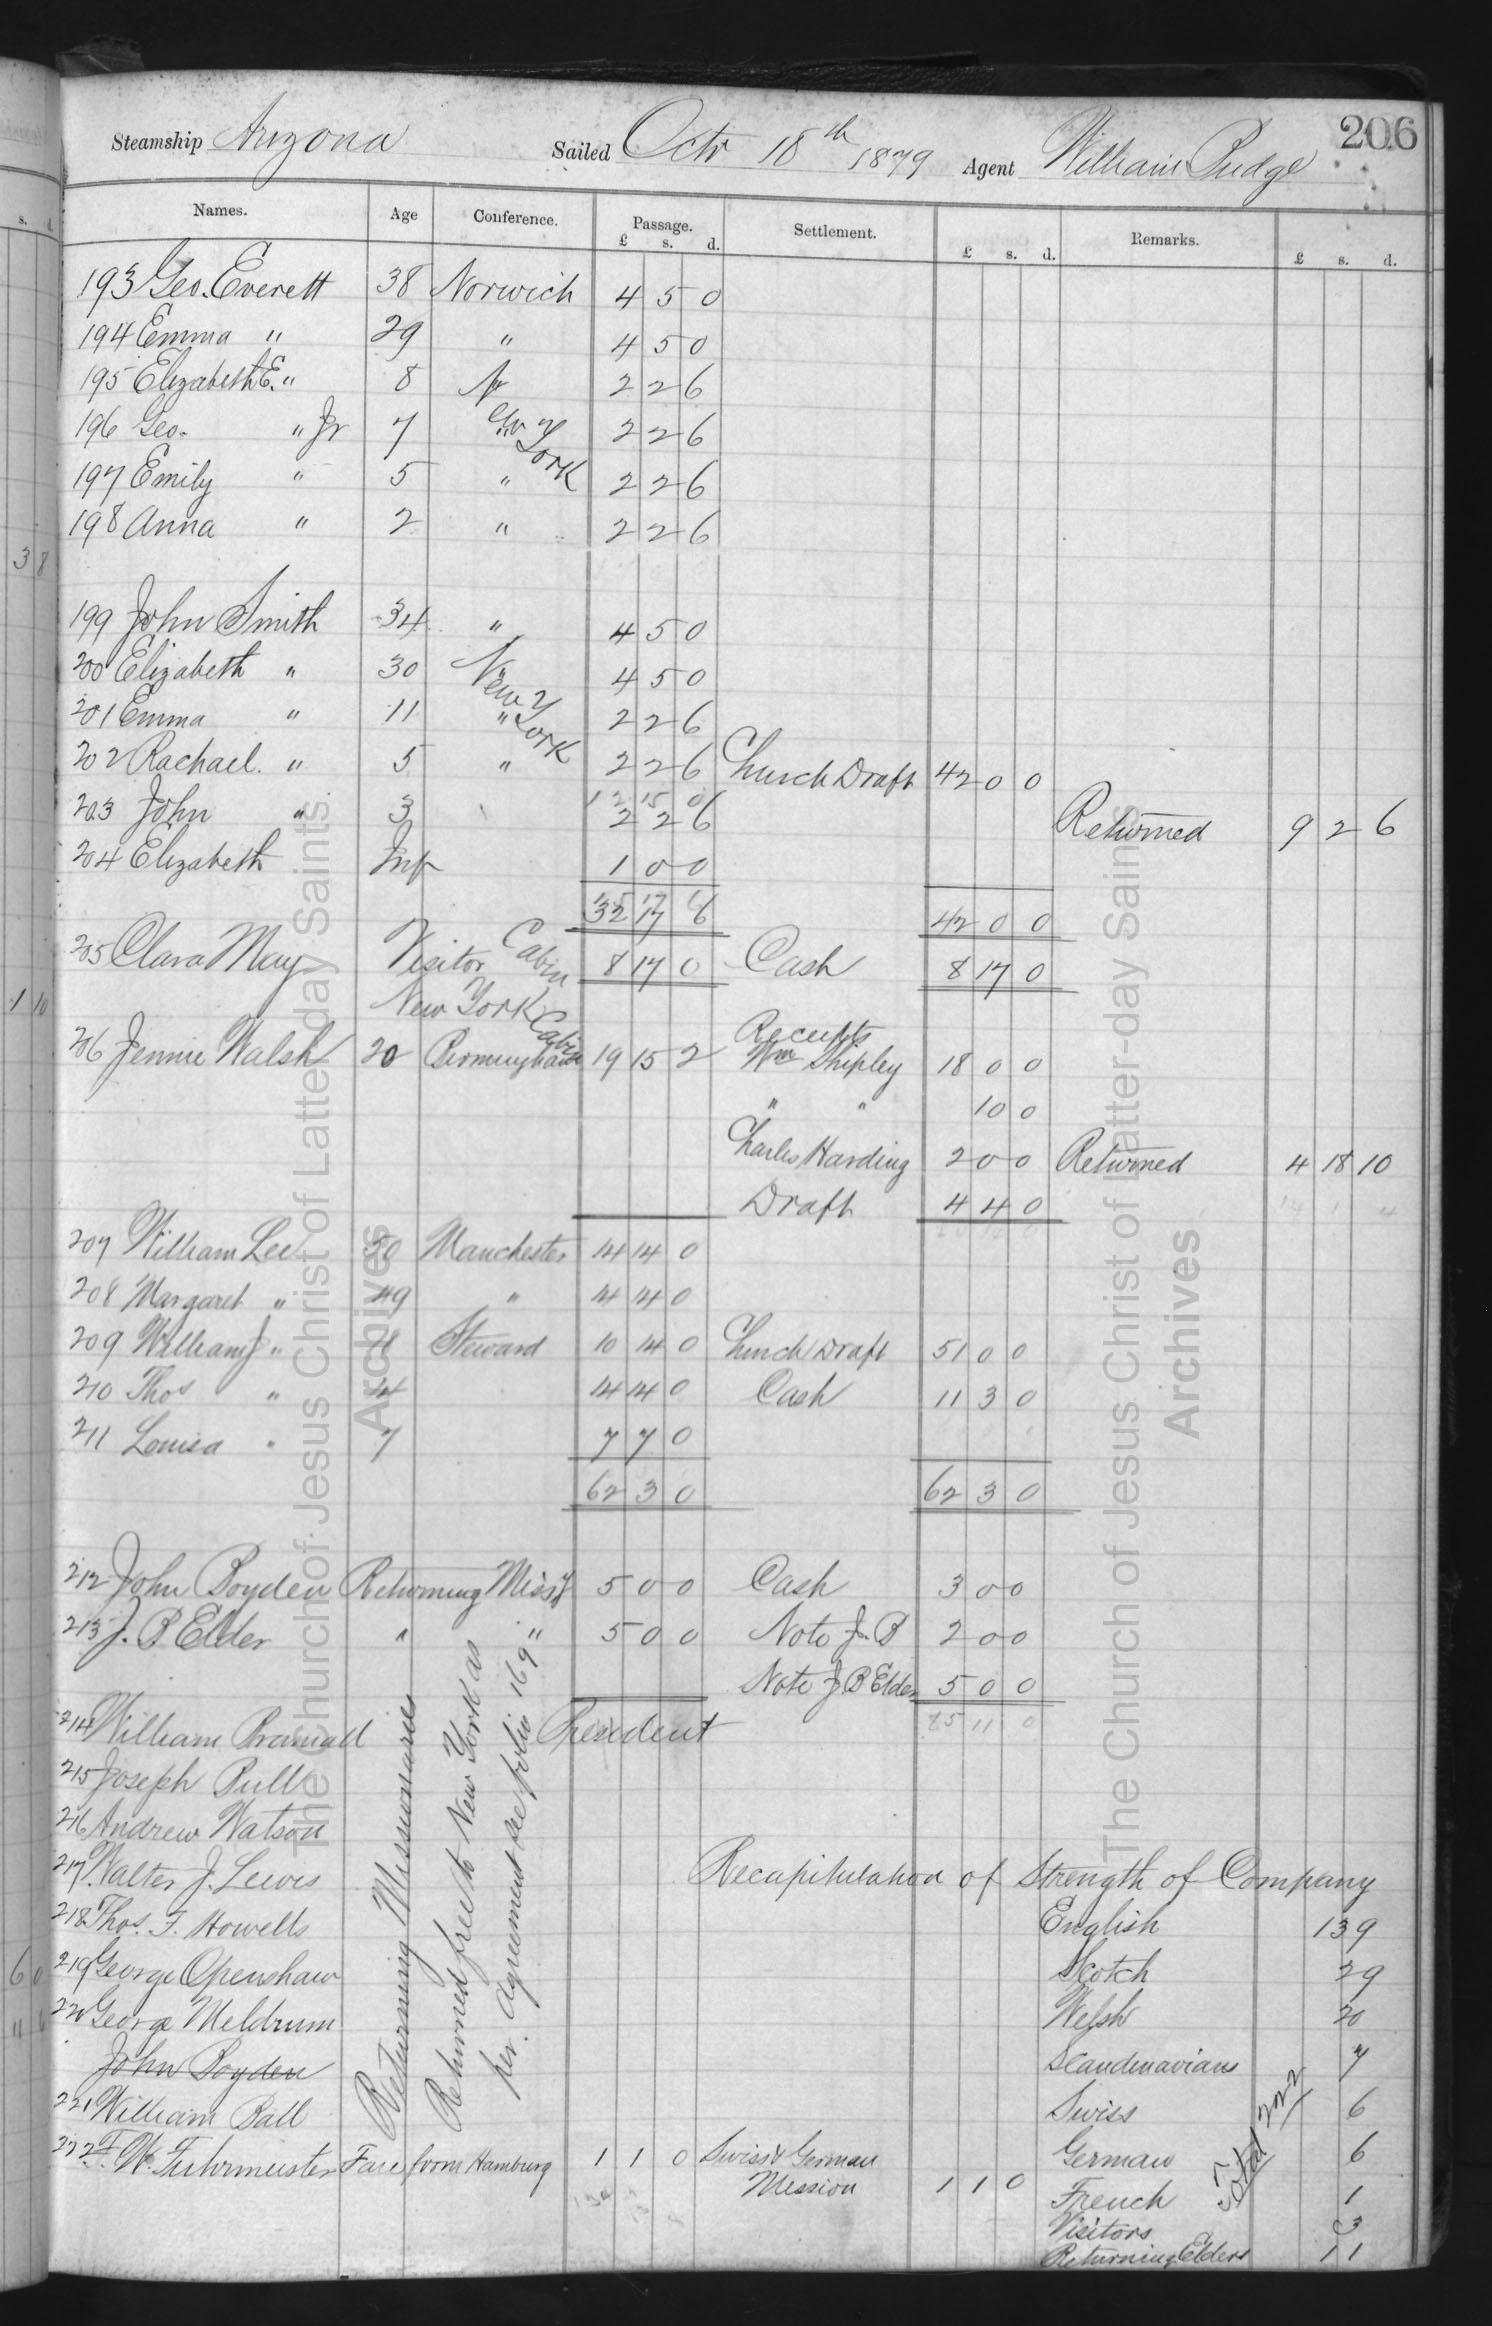 206
Steamship Arizona Sailed Octr 18th 1879 Agent William Budge
Names. Age Conference. Passage. £ s. d. Settlement. £ s. d. Remarks. £ s. d.
193 Geo. Everett 38 Norwich 4 5 0
194 Emma " 29 " 4 5 0
195 Elizabeth E. " 8 2 2 6
196 Geo. " Jr 7 " York 2 2 6
197 Emily " 5 " 2 2 6
198 Anna " 2 " 2 2 6
199 John Smith 34 " 4 5 0
200 Elizabeth " 30 New York 4 5 0
201 Emma " 11 " 2 2 6
202 Rachael. " 5 " 2 2 6 Church Draft 42 0 0
203 John " 3 2 2 6 Returned 9 2 6
204 Elizabeth Inf 1 0 0
32 17 6 42 0 0
205 Clara May Visitor Cabin 8 17 0 Cash 8 17 0
New York
206 Jennie Walsh 20 Birmingham Cabin 19 15 2 Receipts Wm Shipley 18 0 0
" " 10 0
Charles Harding 2 0 0 Returned 4 18 10
Draft 4 4 0
207 William Lee 50 Manchester 14 14 0
208 Margaret " 49 " 14 14 0
209 William J " Steward 10 14 0 Church Draft 51 0 0
210 Thos " 14 14 0 Cash 11 3 0
211 Louisa " 7 7 7 0
62 3 0 62 3 0
212 John Boyden Returning Miss'y 5 0 0 Cash 3 0 0
213 J. B Elder " " 5 0 0 Note J. B 2 0 0
Note J B Elder 5 0 0
214 William Bramall President
215 Joseph Bull
216 Andrew Watson
217 Walter J. Lewis
218 Thos. F. Howells
219 George Openshaw
220 George Meldrum
John Boyden
221 William Ball
222 F. W. Fuhrmeister Fare from Hamburg 1 1 0 Swiss & German
Mission 1 1 0
Returning Missionaries
Returned free to New York as
per. agreement see folio 169
Recapitulation of Strength of Company
English 139
Scotch 29
Welsh 20
Scandinavians 7
Swiss 6
German 6
French 1
Visitors 3
Returning Elders 11
Total 222
The Church of Jesus Christ of Latter-day Saints
Archives
The Church of Jesus Christ of Latter-day Saints
Archives